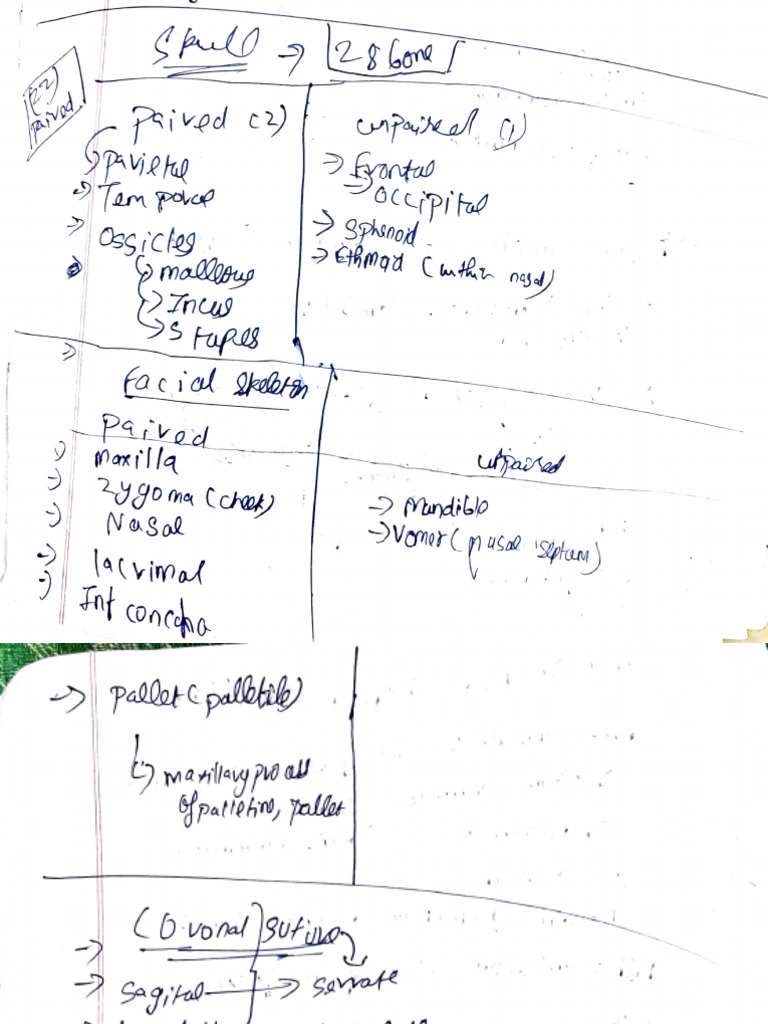 Skull → 28 bone
(22) paired
Paired (2)
Parietal
Temporal
Ossicles
malleous
Incus
Stapes
unpaired (1)
→ Frontal
→ occipital
→ sphenoid
→ Ethmoid (within nasal)
Facial skeleton
Paired
maxilla
Zygoma (cheek)
Nasal
lacrimal
Inf concha
unpaired
→ Mandible
→ Vomer (nasal septum)
→ pallet (palletile)
maxillary process
of palletine, pallet
→ Coronal suture
→ sagital → serrate